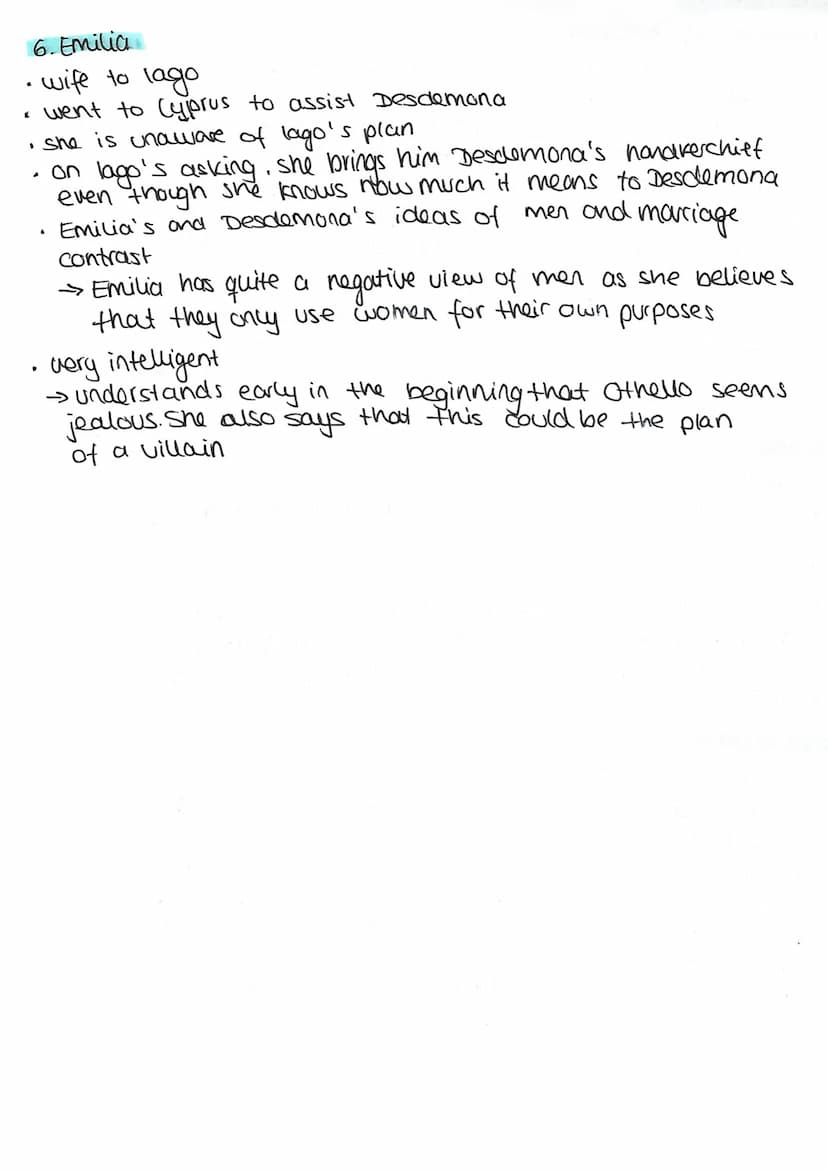 6. Emilia
· wife to Iago
· went to Cyprus to assist Desdemona
· she is unaware of Iago's plan
· on Iago's asking, she brings him Desdemona's handkerchief
even though she knows how much it means to Desdemona
· Emilia's and Desdemona's ideas of men and marriage
contrast
→ Emilia has quite a negative view of men as she believes
that they only use women for their own purposes
· very intelligent
→ understands early in the beginning that Othello seems
jealous. She also says that this could be the plan
of a villain